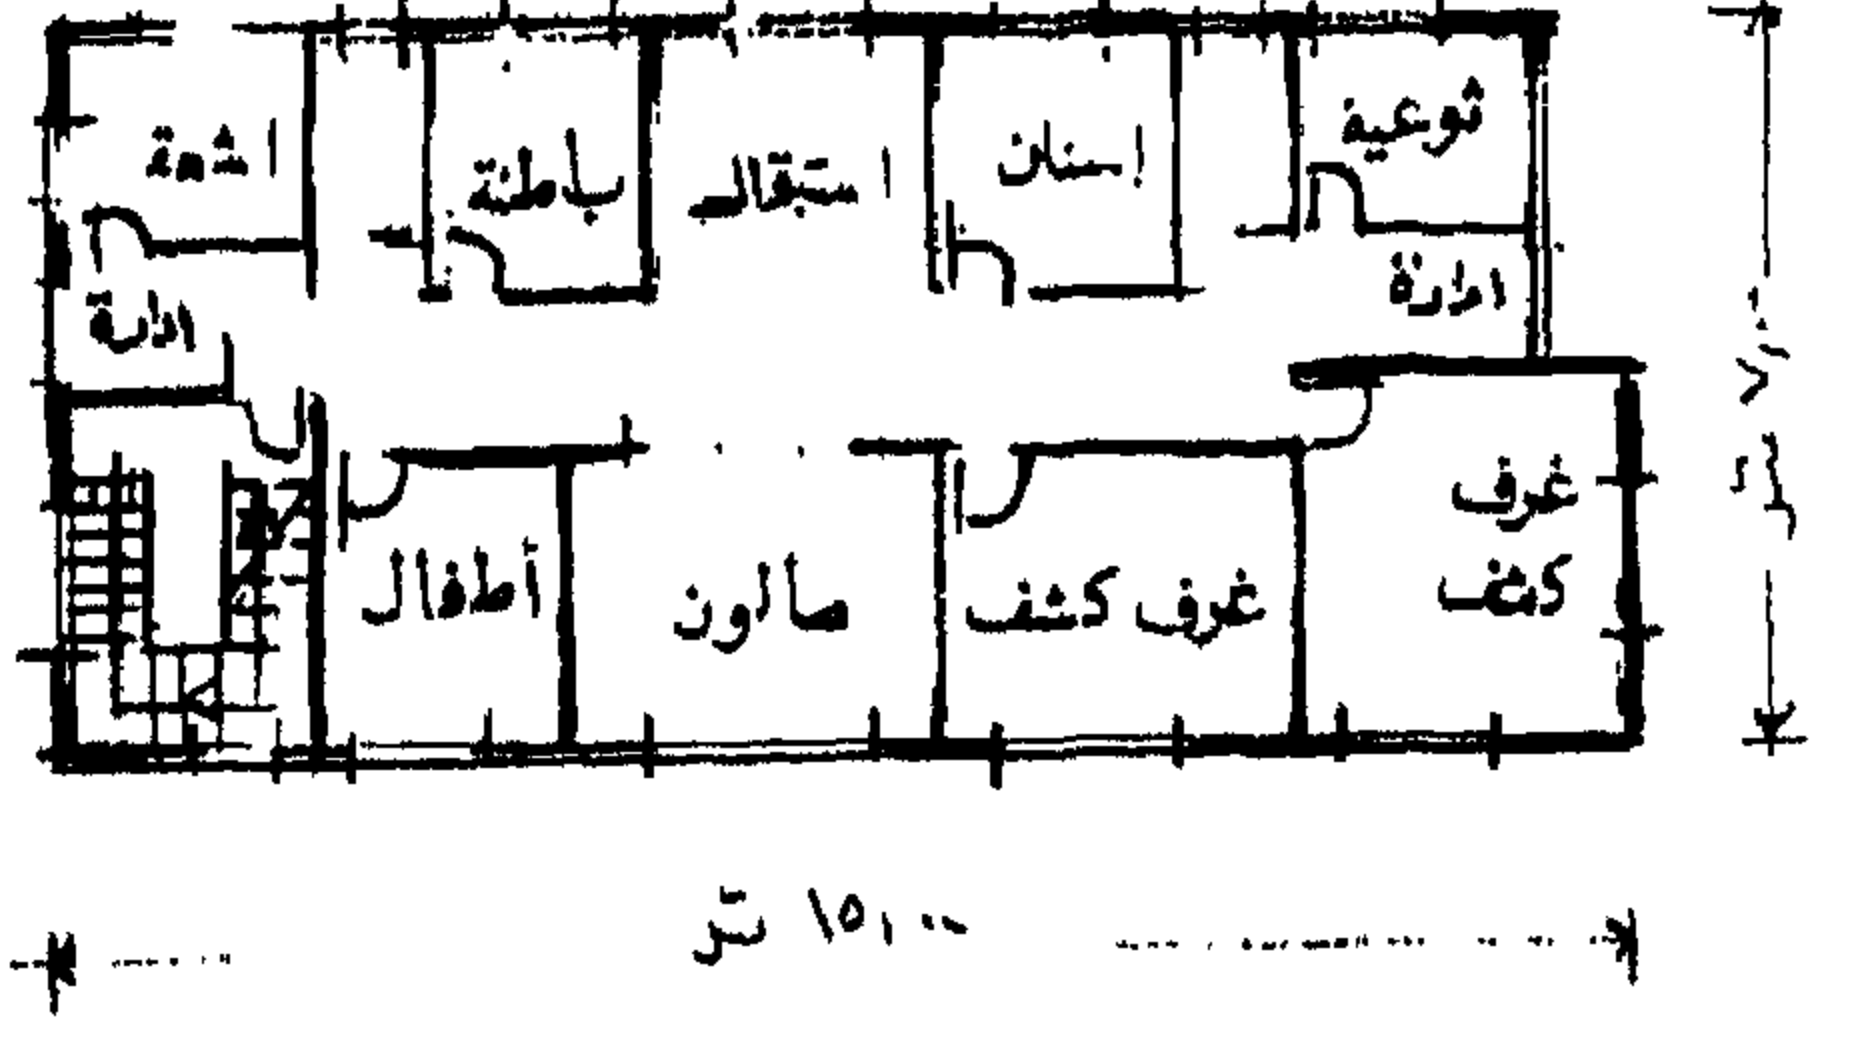 توعية
اسنان
استقبال
باطنة
اشعة
ادارة
ادارة
غرف
كشف
غرف كشف
صالون
أطفال
١٥,٠٠ متر